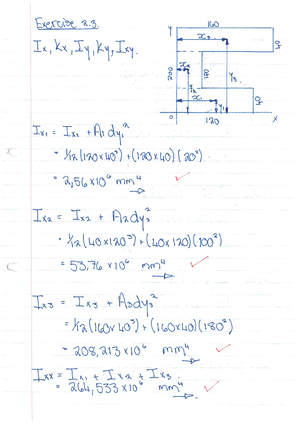 Exercise 2.3.
Ix, Kx, Iy, Ky, Ixy.
Y
160
x3
40
200
x2
120
y3
y2
x1
y1
40
0
120
X
Ix1 = Ix1 + A1dy1²
= 1/12(120×40³) + (120×40)(20²)
= 2,56×10⁶ mm⁴
Ix2 = Ix2 + A2dy2²
= 1/12(40×120³) + (40×120)(100²)
= 53,76×10⁶ mm⁴
Ix3 = Ix3 + A3dy3²
= 1/12(160×40³) + (160×40)(180²)
= 208,213×10⁶ mm⁴
Ixx = Ix1 + Ix2 + Ix3
= 264,533×10⁶ mm⁴